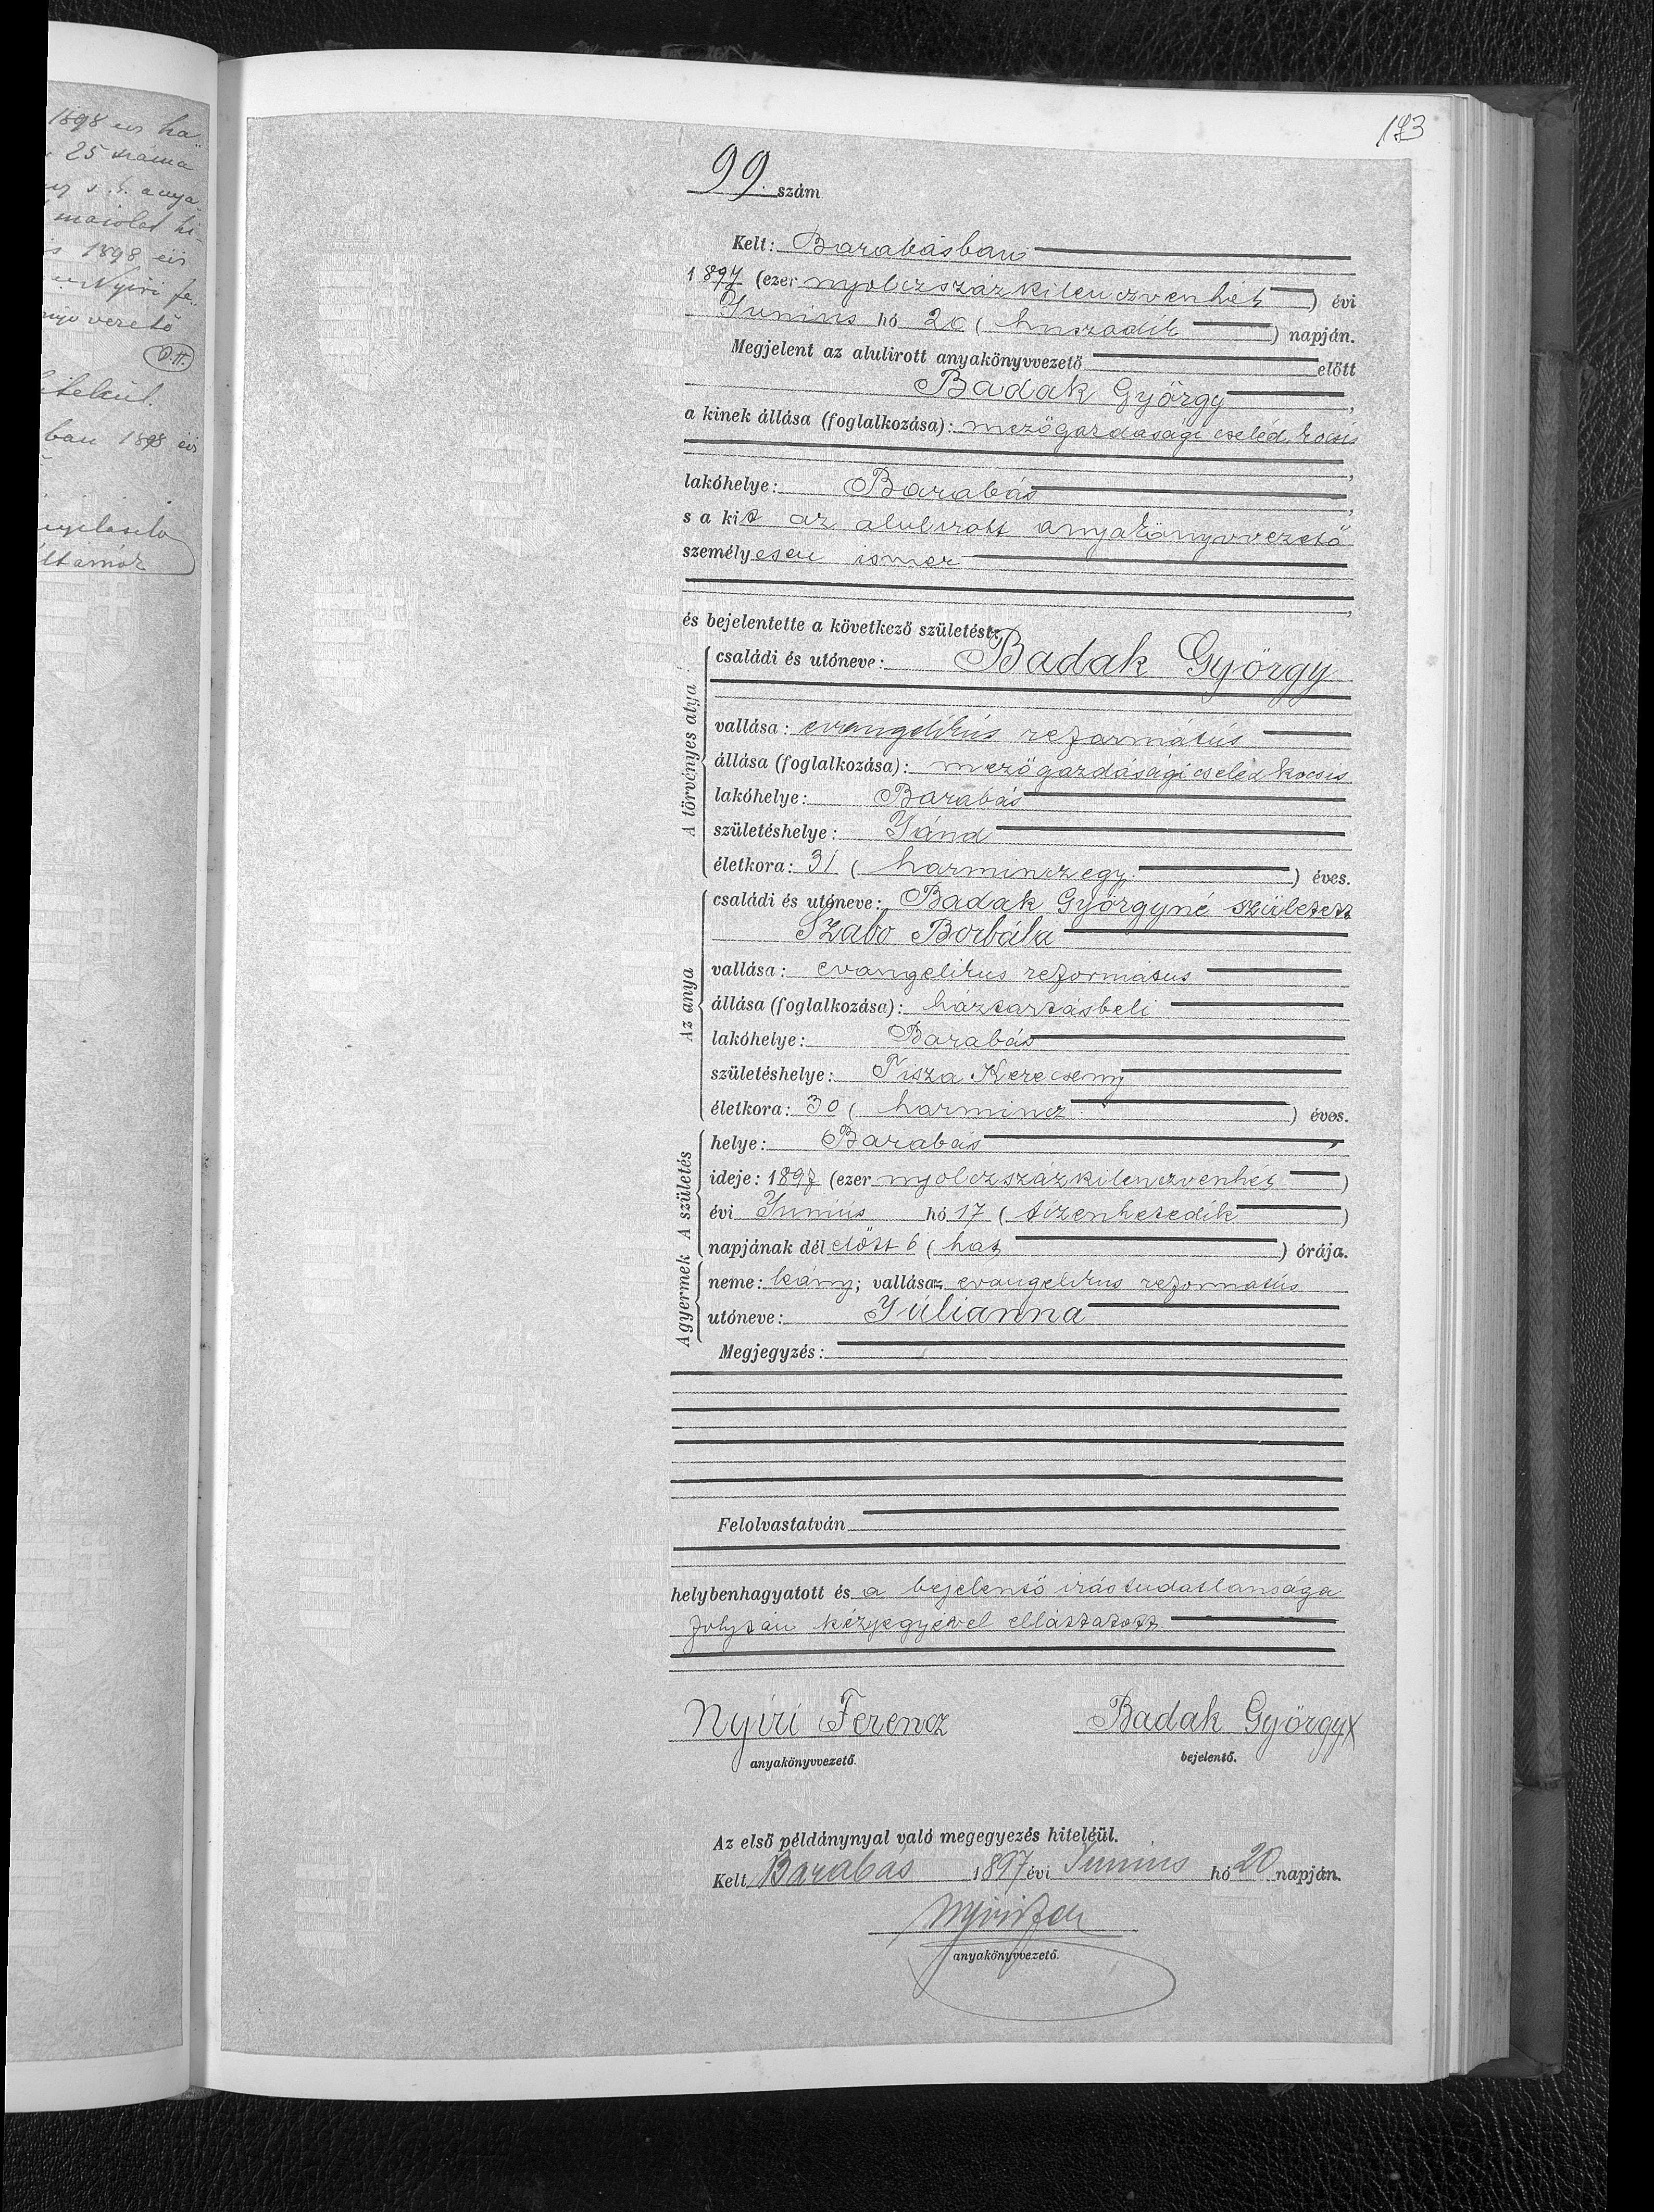 1898 évi
25 száma
1898 évi
Nyiri
vezető
ban 1898 évi
173
99. szám
Kelt: Barabásban
1897 (ezer nyolczszázkilenczvenhét) évi
Junius hó 20 (huszadik) napján.
Megjelent az alulirott anyakönyvvezető előtt
Badak György,
a kinek állása (foglalkozása): mezőgazdasági cseléd, kocsis
lakóhelye: Barabás,
s a kit az alulirott anyakönyvvezető
személyesen ismer
és bejelentette a következő születést:
A törvényes atya
családi és utóneve: Badak György
vallása: evangélikús református
állása (foglalkozása): mezőgazdásági cseléd kocsis
lakóhelye: Barabás
születéshelye: Jánd
életkora: 31 (harminczegy) éves.
Az anya
családi és utóneve: Badak Györgyné született
Szabó Borbála
vallása: evangelikus református
állása (foglalkozása): háztartásbeli
lakóhelye: Barabás
születéshelye: Tisza Kerecseny
életkora: 30 (harmincz) éves.
A születés
helye: Barabás
ideje: 1897 (ezer nyolczszázkilenczvenhét)
évi Junius hó 17 (tizenhetedik)
napjának dél előtt 6 (hat) órája.
A gyermek
neme: leány; vallása: evangelikus református
utóneve: Júlianna
Megjegyzés:
Felolvastatván
helybenhagyatott és a bejelentő irástudatlansága
folytán kézjegyével elláttatott.
Nyiri Ferencz Badak György x
anyakönyvvezető. bejelentő.
Az első példánynyal való megegyezés hiteléül.
Kelt Barabás 1897 évi Junius hó 20 napján.
Nyiri Fer
anyakönyvvezető.